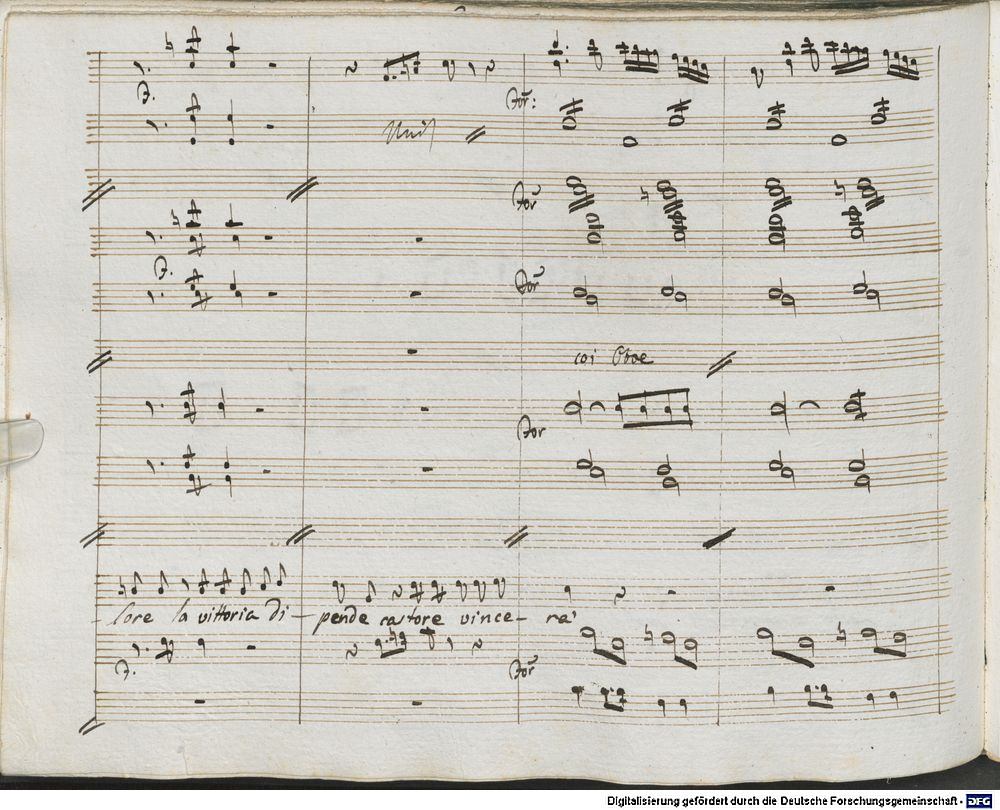 f.
For:
Unis
For
f.
For
coi Oboe
For
lore la vittoria di-pende castore vince-rà
f.
For
Digitalisierung gefördert durch die Deutsche Forschungsgemeinschaft - DFG